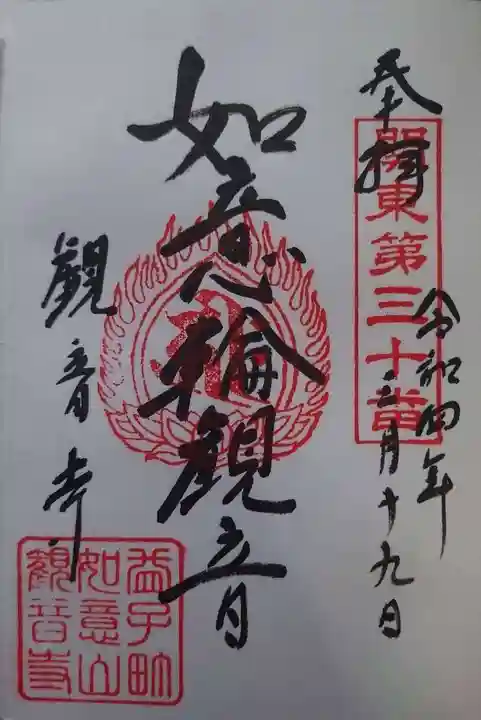 奉拝
関東第三十番
令和四年
三月十九日
如意輪観音
観音寺
益子町
如意山
観音寺